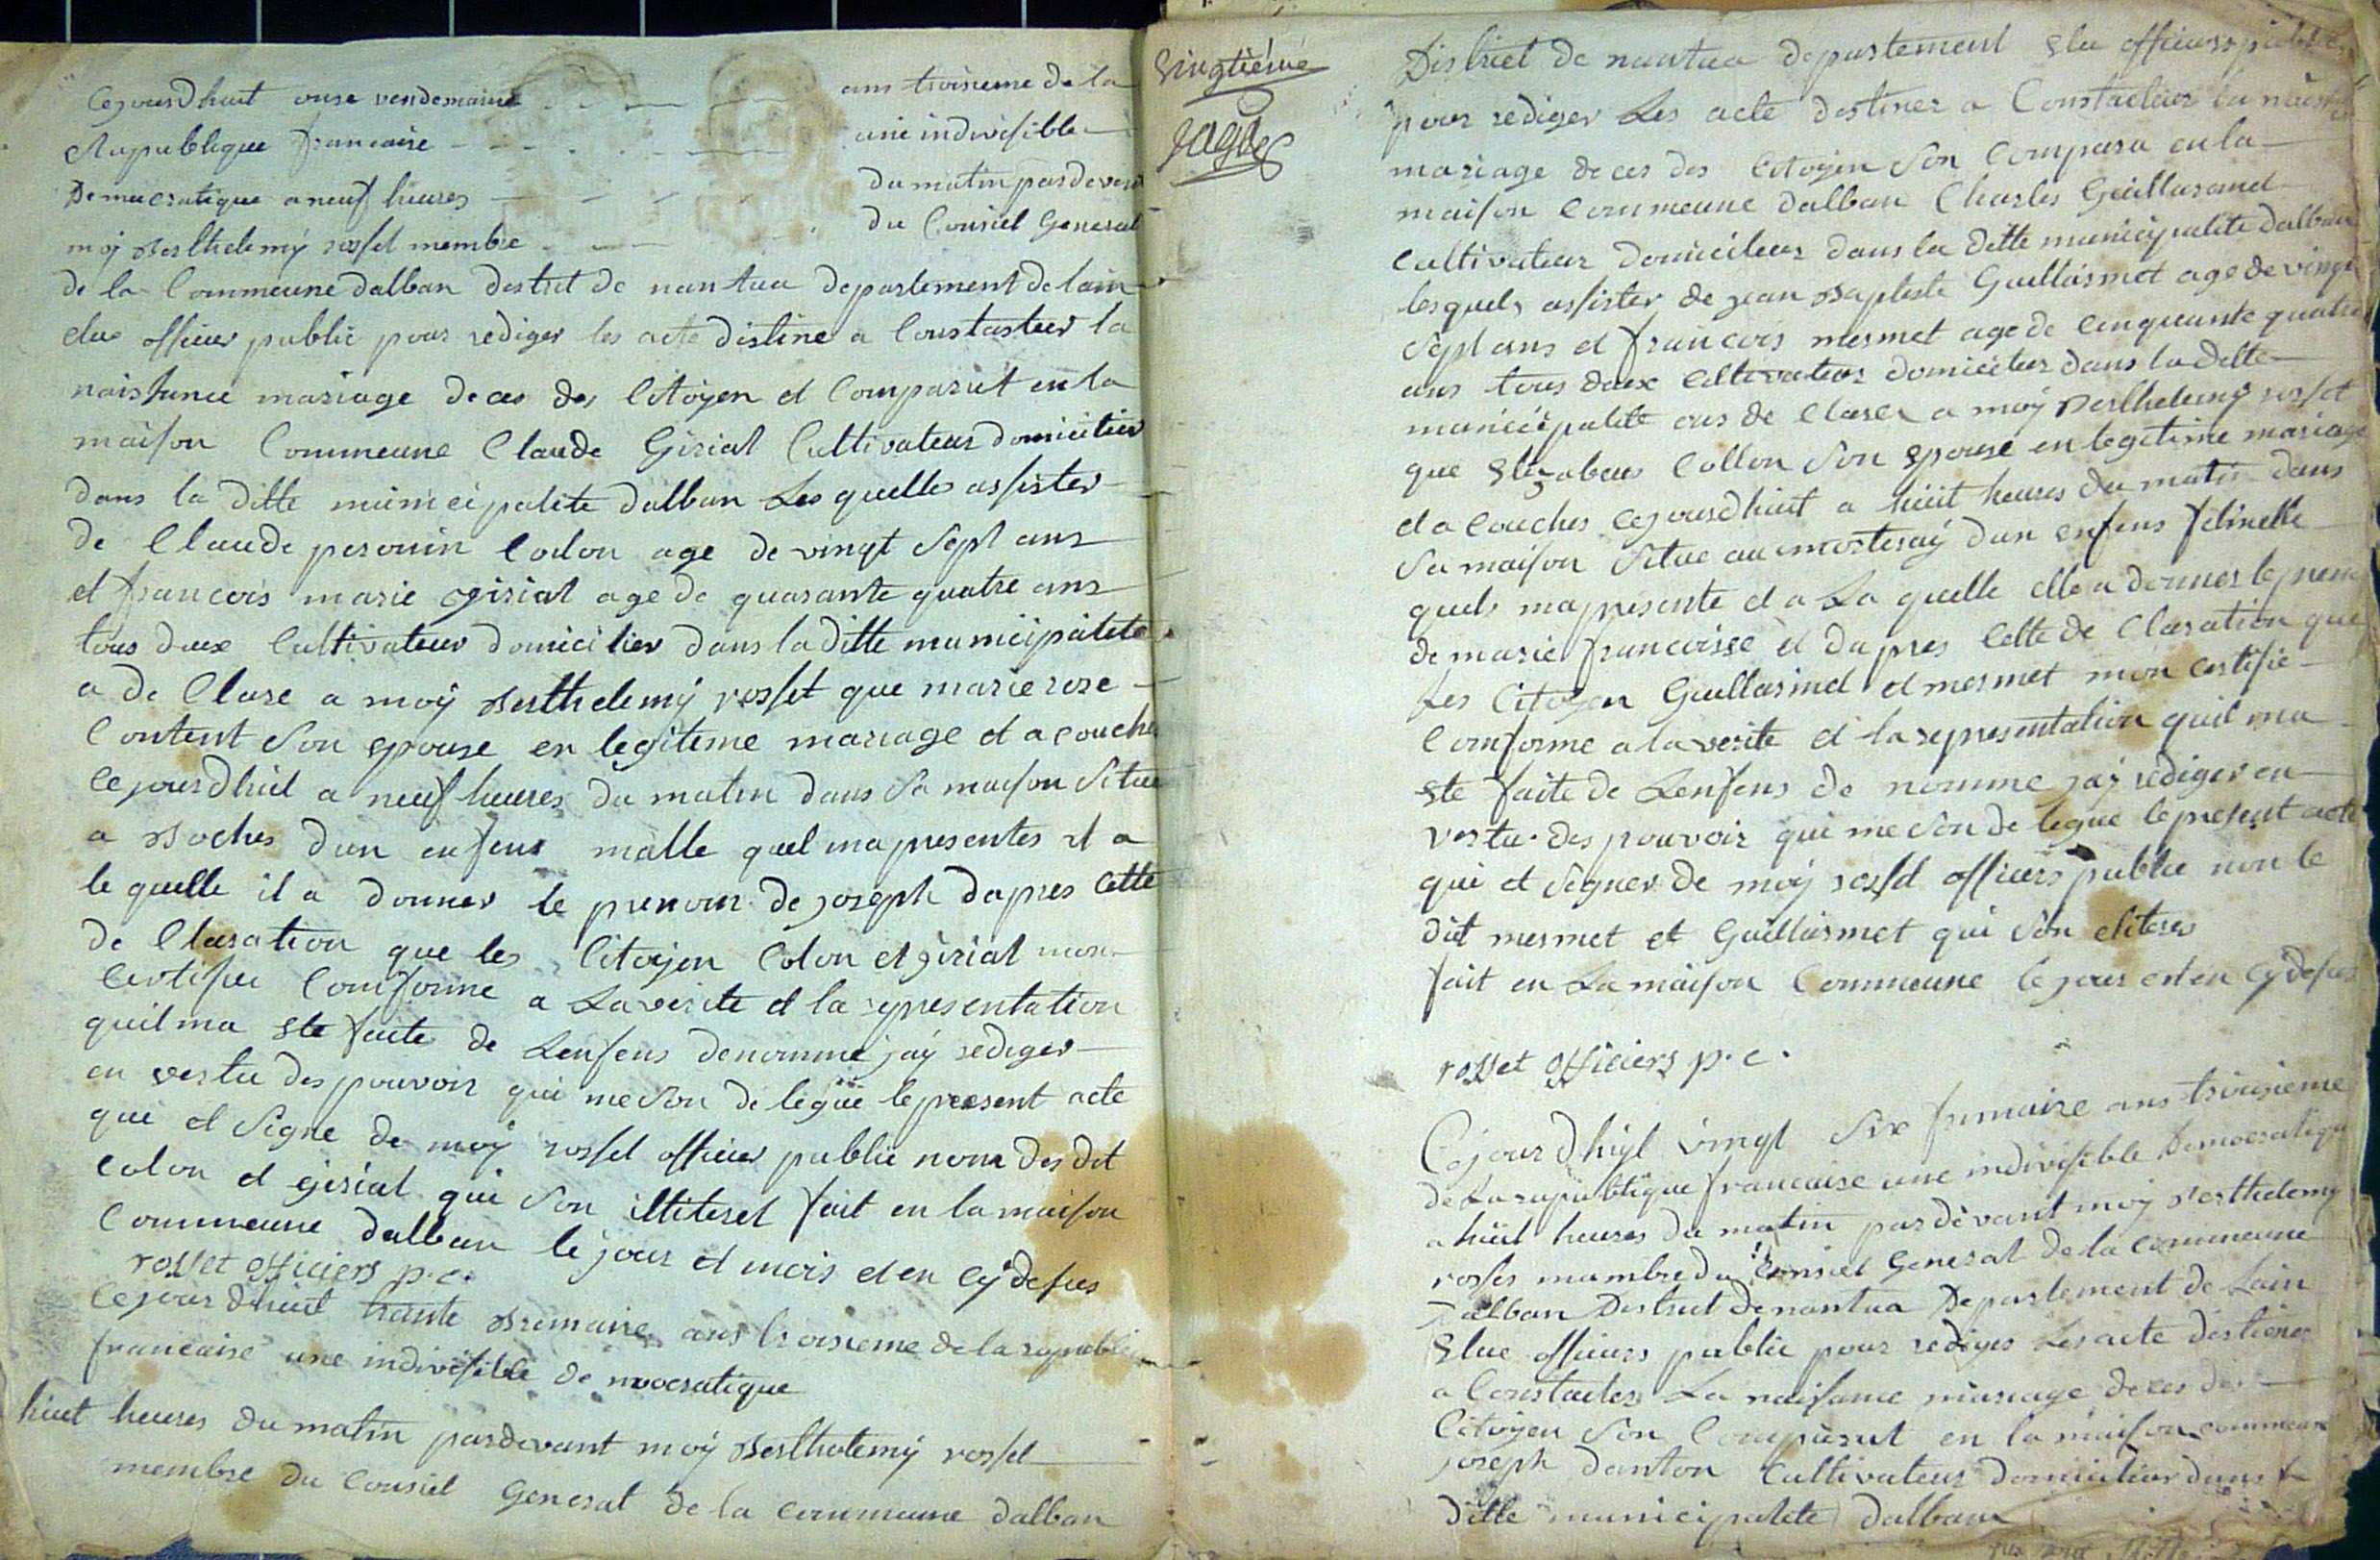 Cejourdhuit onse vendemaire ans troisieme de la
Rupublique francaise une indivisible
Democratique a neuf heures du matin pardevent
moÿ Berthelemÿ rosset membre du Consiel General
de la Commeune dalban destrict de nantua departement de lain
elue officier public pour rediger les acte distine a Constastuer la
naissance mariage deces des Citoyen et Comparut en la
maison Commeune Claude Girial Cultivateur domicilier
dans la ditte municipalite dalban Les quelles assister
de Claude perouin Colon age de vingt Sept ans
et francois marie girial age de quarante quatre ans
tous deux Cultivateur domicilier dans la ditte municipalite
a de Clare a moÿ Berthelemÿ rosset que marie rose
Content Son epouse en legitime mariage et a couche
Cejourdhuit a neuf heures du matin dans Sa maison Situe
a Boches dun enfens malle quel ma presentes et a
le quelle il a donner le prenom de joseph dapres Cette
de Claration que les Citoyen Colon et girial mon
Certifier Comforme a La verite et la representation
quil ma ete faite de Lenfens denomme jaÿ rediger
en vertu des pouvoir qui me Son de legue le present acte
qui et Signe de moÿ rosset officier public non des dit
Colon et girial qui Son illiteret fait en la maison
Commeune dalban le jour et mois et en Cÿ desus
rosset officiers p.c.
Cejour dhuit trante Brumaire ans troisieme de la republi
francaise une indivisible de mocratique
huit heures du matin pardevant moÿ Berthelemÿ rosset
membre du Consiel General de la commeune dalban
Vingtiéme
page
District de nantua departement elu officiers public
pour rediger Les acte destiner a Constactuer la nais
mariage deces des Citoyen Son Compara en la
maison Commeune dalban Charles Guillarmet
Cultivateur domicilier dans la ditte municipalite dalban
lesquels assister de jean Baptiste Guillarmet age de vingt
Sept ans et francois mermet age de Cinquante quatre
ans tous deux Cultivateur domicilier dans la ditte
municipalite ons de Clarer a moÿ Berthelemÿ rosset
que Elizabeus Collon Son epouse en legitime mariage
et a Couches cejourdhuit a huit heures du matin dans
Sa maison Situe au mortaraÿ dun enfens feminelle
quels ma presente et a La quelle elle a donner le prenom
de marie francoisse et da pres Cette de Claration que
Les Citoyen Guillarmet et mermet mon certifie
Comforme a la verite et la representation quil ma
ete faite de Lenfens de nomme jaÿ rediger en
vertu des pouvoir qui me Son de legue le present acte
qui et Signer de moÿ rosset officiers public non le
dit mermet et Guillarmet qui Son eliteres
fait en La maison Commeune le jour et en Cÿ desus
rosset officiers p.c.
Cejourdhuyt vingt Six frimaire ans troisieme
de La republique francaise une indivisible Democratique
a huit heures du matin pardevant moÿ Berthelemy
rosses mambre du Consiel General de la commeune
Dalban District de nantua Departement de Lain
Elue officiers public pour rediges Les acte destiener
a Constacter La naissance mariage deces des
Citoyen Son Comparut en la maison commeune
joseph danton Cultivateur domicilier dans la
ditte municipalite dalban